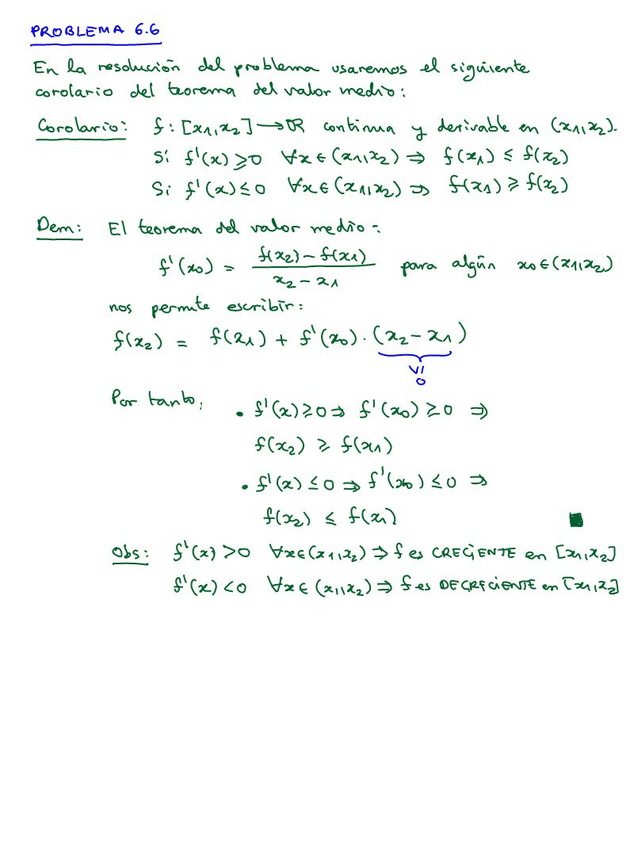 PROBLEMA 6.6
En la resolución del problema usaremos el siguiente
corolario del teorema del valor medio:
Corolario: f: [x1,x2] → ℝ continua y derivable en (x1,x2).
Si f'(x) ≥ 0 ∀x ∈ (x1,x2) ⇒ f(x1) ≤ f(x2)
Si f'(x) ≤ 0 ∀x ∈ (x1,x2) ⇒ f(x1) ≥ f(x2)
Dem: El teorema del valor medio:
f'(x0) = (f(x2) − f(x1)) / (x2 − x1) para algún x0 ∈ (x1,x2)
nos permite escribir:
f(x2) = f(x1) + f'(x0) · (x2 − x1)
≥
0
Por tanto: • f'(x) ≥ 0 ⇒ f'(x0) ≥ 0 ⇒
f(x2) ≥ f(x1)
• f'(x) ≤ 0 ⇒ f'(x0) ≤ 0 ⇒
f(x2) ≤ f(x1) ■
Obs: f'(x) > 0 ∀x ∈ (x1,x2) ⇒ f es CRECIENTE en [x1,x2]
f'(x) < 0 ∀x ∈ (x1,x2) ⇒ f es DECRECIENTE en [x1,x2]